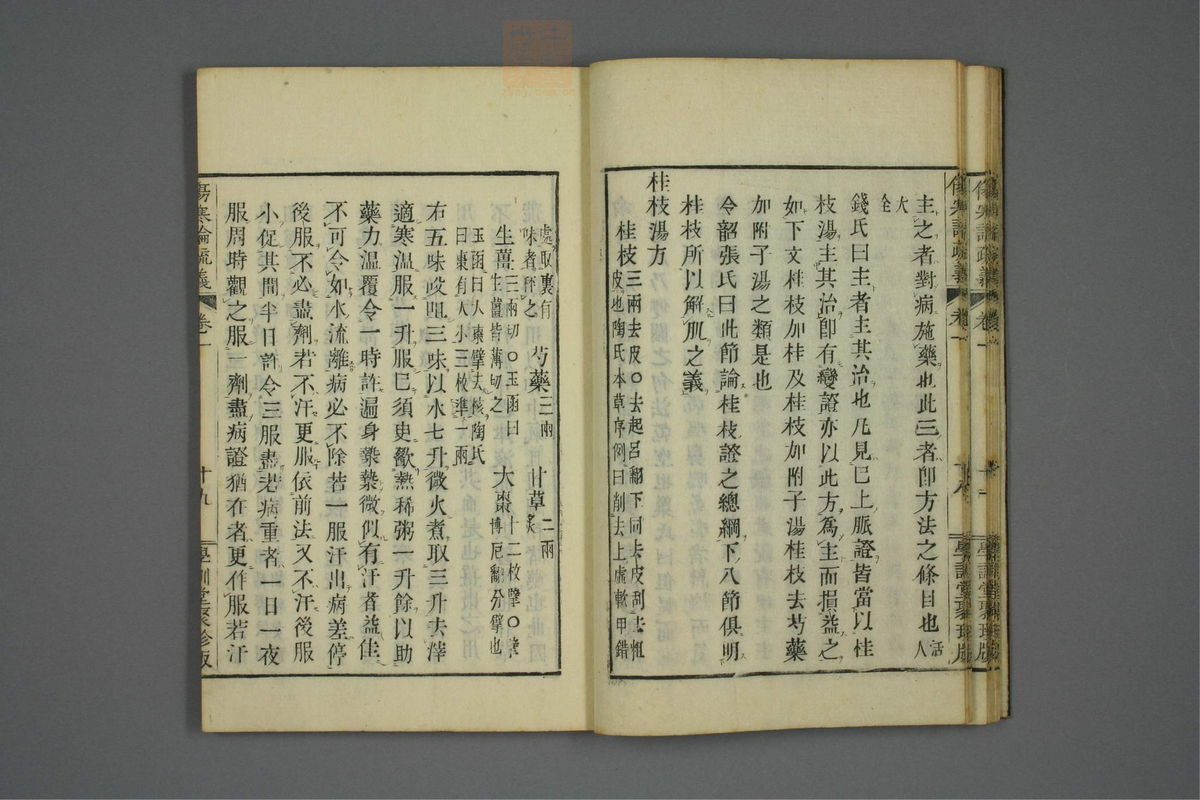 主之者對病施藥也此三者卽方法之條目也活人
大全
錢氏曰主者主其治也凡見已上脈證皆當以桂
枝湯主其治卽有變證亦以此方爲主而損益之
如下文桂枝加桂及桂枝加附子湯桂枝去芍藥
加附子湯之類是也
令韶張氏曰此節論桂枝證之總綱下八節俱明
桂枝所以解肌之義
桂枝湯方
桂枝三兩去皮○去起呂翻下同去皮刮去粗
皮也陶氏本草序例曰削去上虛軟甲錯
處取裏有
味者秤之
芍藥三兩
甘草二兩
炙
生薑三兩切○玉函曰
生薑皆薄切之
大棗十二枚擘○擘
博厄翻分擘也
玉函曰人棗擘去核陶氏
曰棗有大小三枚準一兩
右五味㕮咀三味以水七升微火煮取三升去滓
適寒溫服一升服已須臾歠熱稀粥一升餘以助
藥力溫覆令一時許遍身漐漐微似有汗者益佳
不可令如水流離病必不除若一服汗出病差停
後服不必盡劑若不汗更服依前法又不汗後服
小促其間半日許令三服盡若病重者一日一夜
服周時觀之服一劑盡病證猶在者更作服若汗
傷寒論疏義
卷一
十九
學訓堂聚珍版